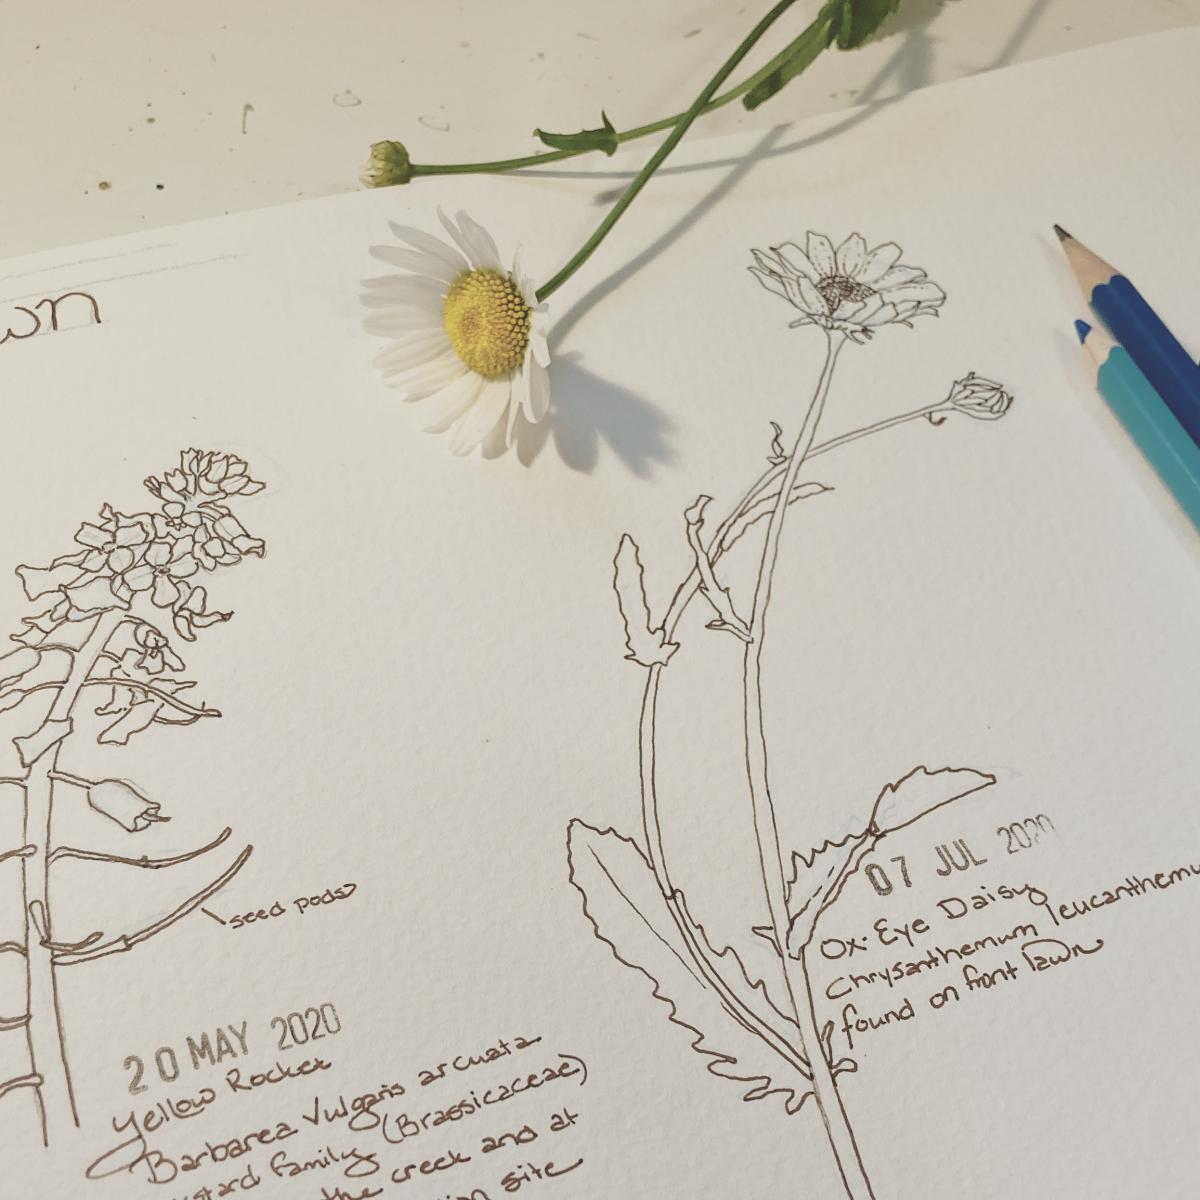 wn
seed pods
20 MAY 2020
Yellow Rocket
Barbarea Vulgaris arcuata
stard family (Brassicaceae)
the creek and at
ion site
07 JUL 2020
Ox-Eye Daisy
Chrysanthemum leucanthemu
found on front lawn